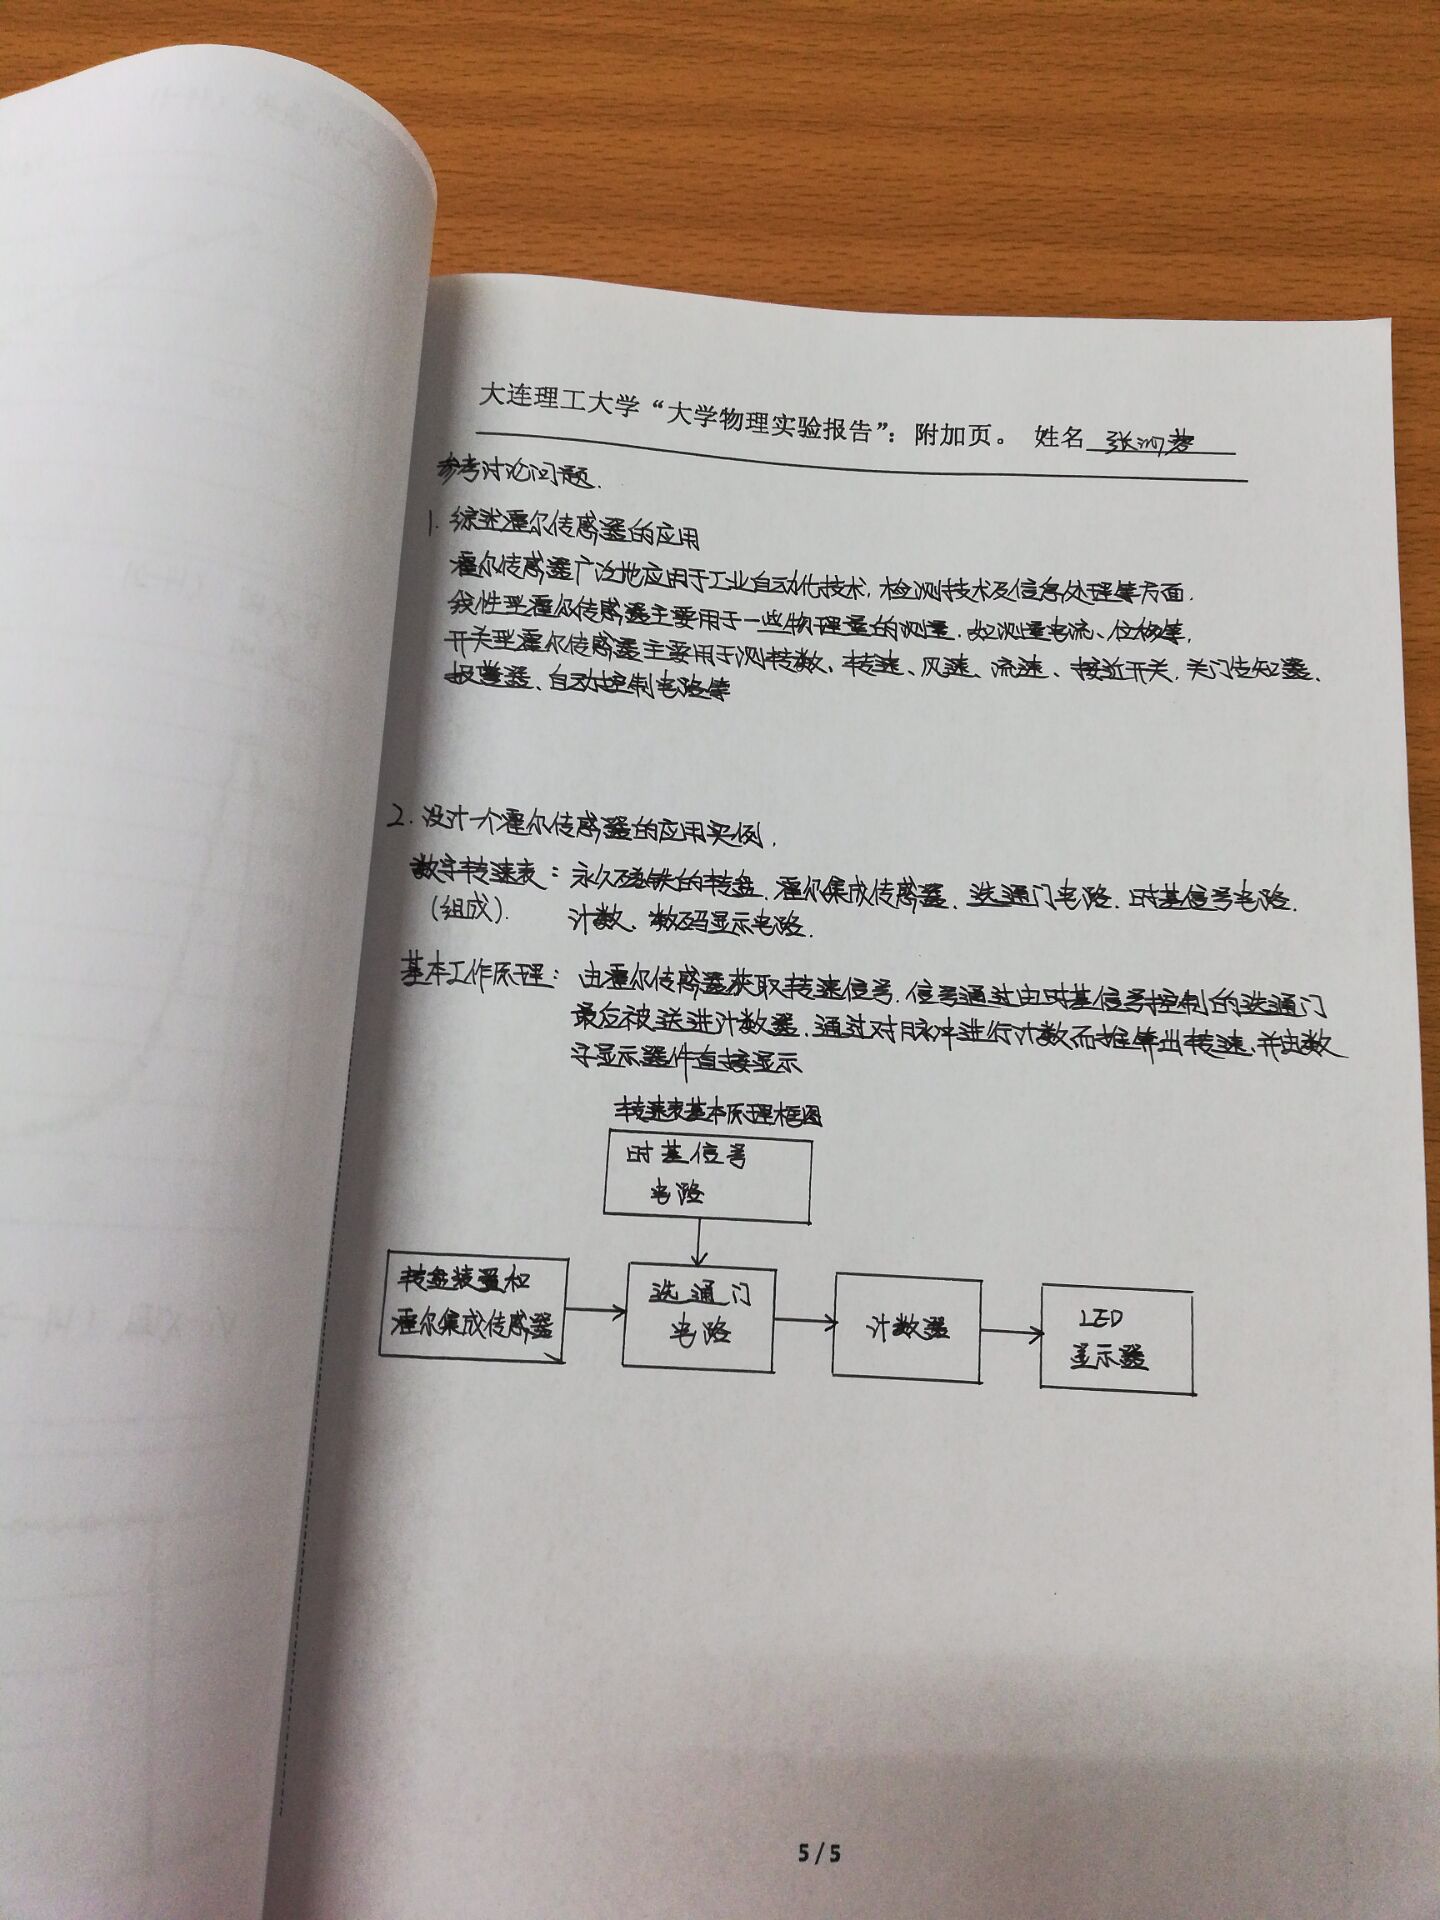 大连理工大学“大学物理实验报告”：附加页。 姓名 张
参考讨论问题.
1. 综述霍尔传感器的应用
霍尔传感器广泛地应用于工业自动化技术, 检测技术及信息处理等方面.
线性型霍尔传感器主要用于一些物理量的测量. 如测量电流、位移等,
开关型霍尔传感器主要用于测转数、转速、风速、流速、接近开关, 关门告知器、
报警器、自动控制电路等
2. 设计一个霍尔传感器的应用实例.
数字转速表: 永久磁铁的转盘, 霍尔集成传感器、选通门电路, 时基信号电路.
(组成). 计数、数码显示电路.
基本工作原理: 由霍尔传感器获取转速信号. 信号通过由时基信号控制的选通门
最后被送进计数器, 通过对脉冲进行计数而推算出转速, 并由数
字显示器件直接显示
转速表基本原理框图
时基信号
电路
转盘装置和
霍尔集成传感器
选通门
电路
计数器
LED
显示器
5 / 5